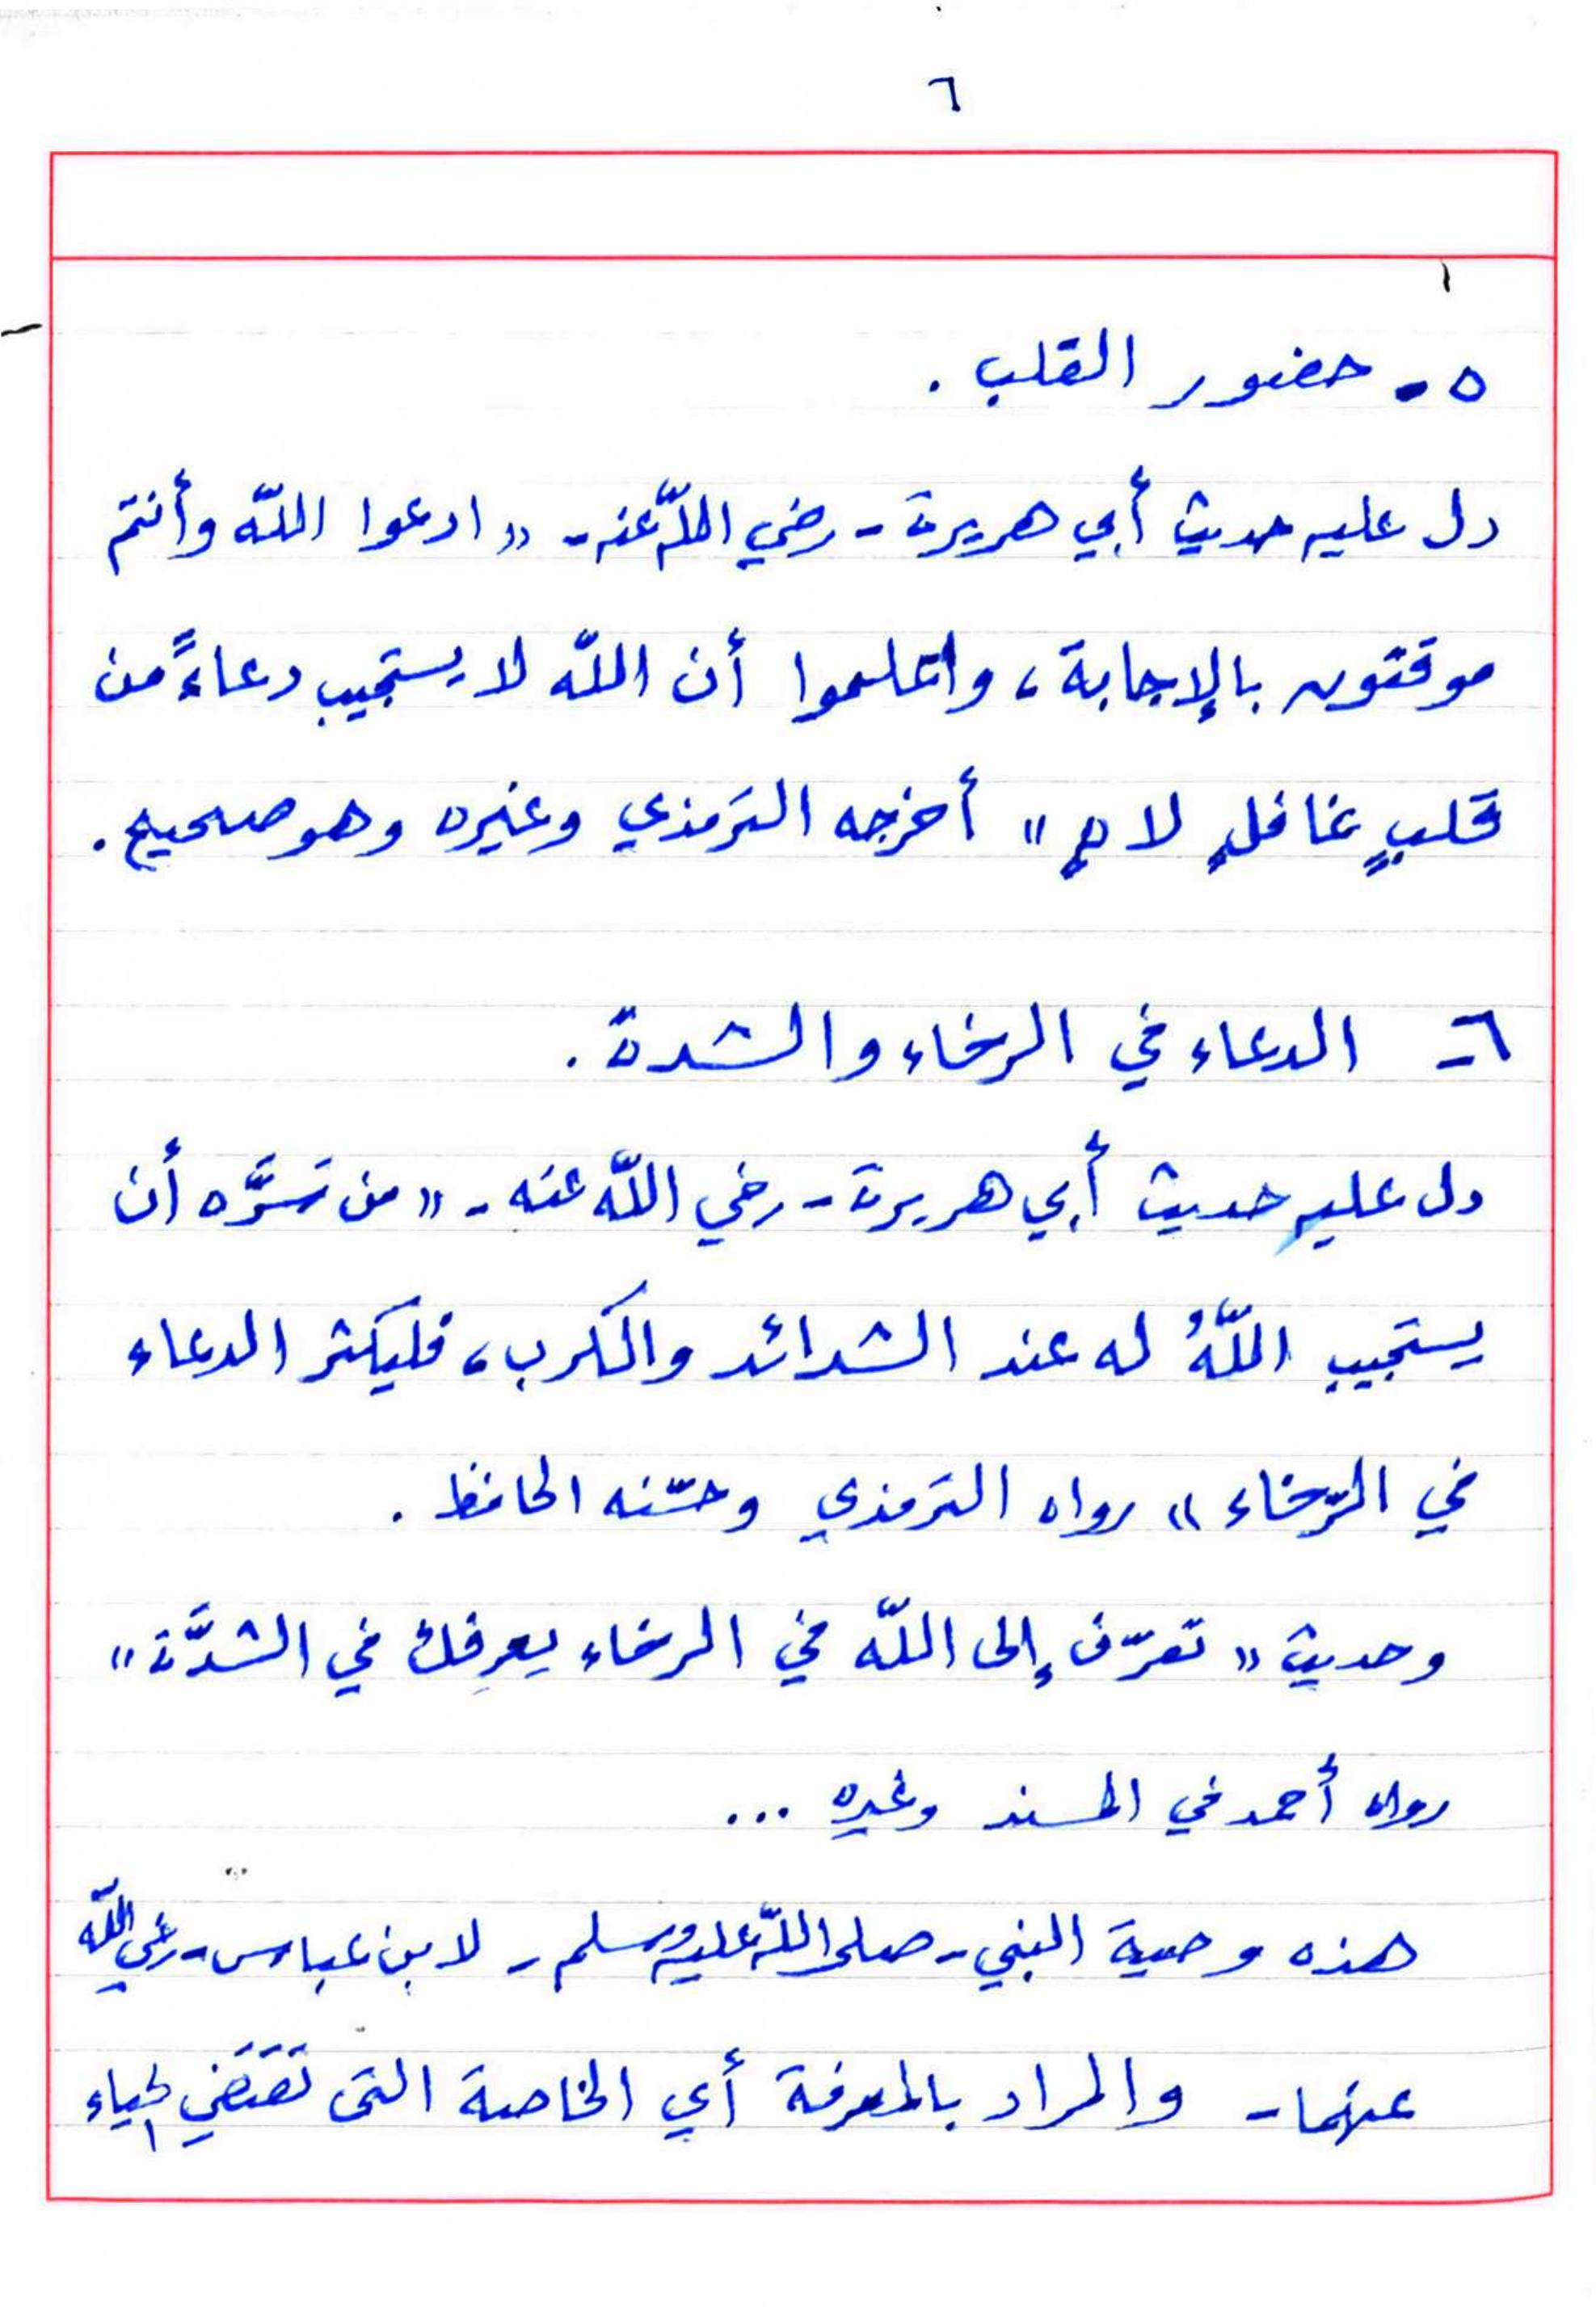 ٦
٥- حضور القلب .
دل عليه حديث أبي هريرة - رضي اللّه عنه - « ادعوا اللّه وأنتم
موقنون بالإجابة ، واعلموا أن اللّه لا يستجيب دعاءً من
قلبٍ غافلٍ لاهٍ » أخرجه الترمذي وغيره وهو صحيح .
٦- الدعاء في الرخاء والشدة .
دل عليه حديث أبي هريرة - رضي اللّه عنه - « من سَرَّه أن
يستجيب اللّهُ له عند الشدائد والكرب ، فليكثر الدعاء
في الرّخاء » رواه الترمذي وحسّنه الحافظ .
وحديث « تعرّف إلى اللّه في الرخاء يعرفك في الشدَّة »
رواه أحمد في المسند وغيره ...
هذه وصية النبي - صلى اللّه عليه وسلم - لابن عباس - رضي اللّه
عنهما - والمراد بالمعرفة أي الخاصة التي تقتضي الحياء